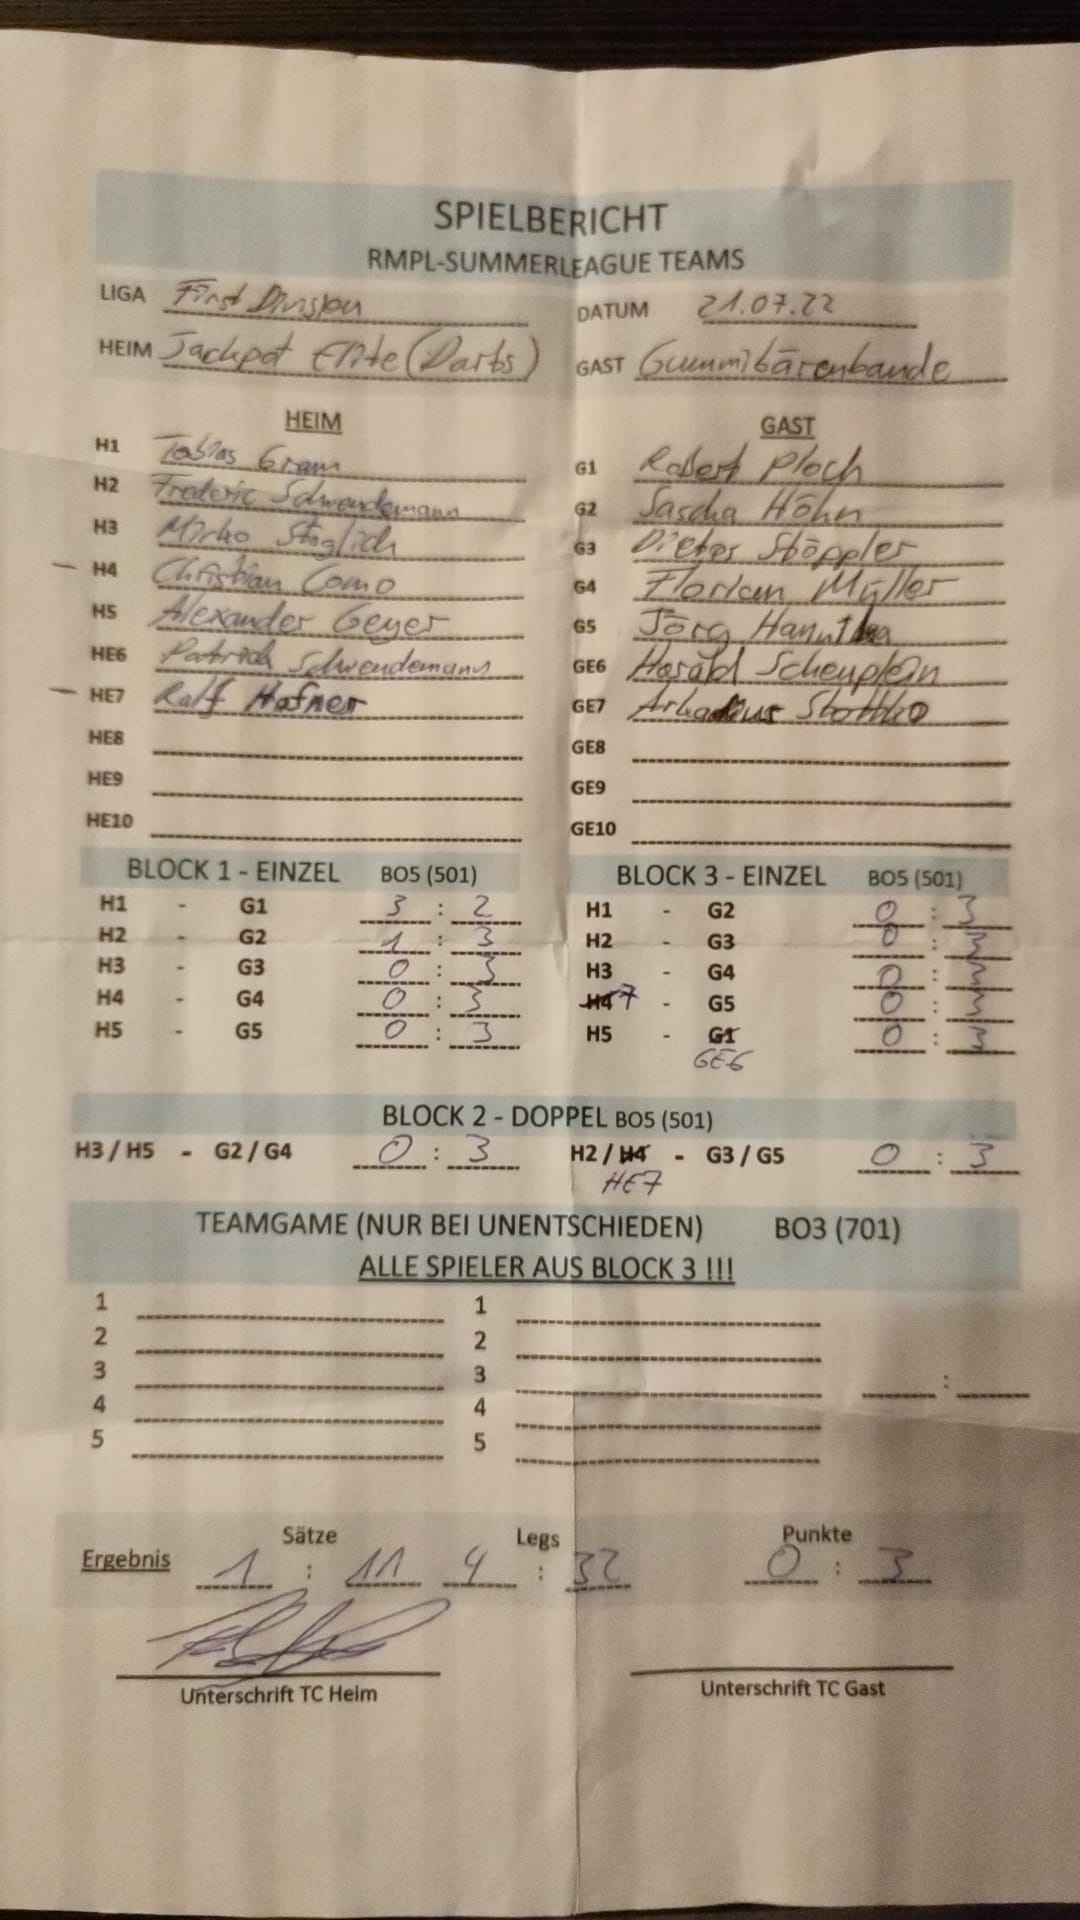 SPIELBERICHT
RMPL-SUMMERLEAGUE TEAMS
LIGA First Division DATUM 21.07.22
HEIM Jackpot Elite (Darts) GAST Gummibärenbande
HEIM GAST
H1 Tobias Gram G1 Robert Ploch
H2 Frederic Schwendemann G2 Sascha Höhn
H3 Mirko Stöglich G3 Dieter Stöppler
H4 Christian Como G4 Florian Müller
H5 Alexander Geyer G5 Jörg
HE6 Patrick Schwendemann GE6 Harald Scheuplein
HE7 Ralf Hafner GE7 Arkadius
HE8 GE8
HE9 GE9
HE10 GE10
BLOCK 1 - EINZEL BO5 (501) BLOCK 3 - EINZEL BO5 (501)
H1 - G1 3 : 2 H1 - G2 0 : 3
H2 - G2 1 : 3 H2 - G3 0 : 3
H3 - G3 0 : 3 H3 - G4 0 : 3
H4 - G4 0 : 3 H4 7 - G5 0 : 3
H5 - G5 0 : 3 H5 - G1 0 : 3
GE6
BLOCK 2 - DOPPEL BO5 (501)
H3 / H5 - G2 / G4 0 : 3 H2 / H4 - G3 / G5 0 : 3
HE7
TEAMGAME (NUR BEI UNENTSCHIEDEN) BO3 (701)
ALLE SPIELER AUS BLOCK 3 !!!
1 1
2 2
3 3 :
4 4
5 5
Sätze Legs Punkte
Ergebnis 1 : 11 4 : 32 0 : 3
Unterschrift TC Heim Unterschrift TC Gast